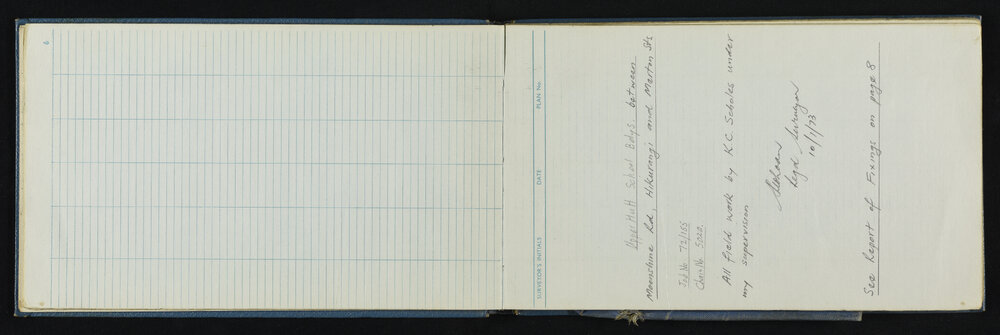 SURVEYOR'S INITIALS DATE PLAN No.
Upper Hutt School Bdys. between
Moonshine Rd, Hikurangi and Marton Sts
Job No. 72/165
Chain No. 5022
All field work by K.C. Scholes under
my supervision
Regd Surveyor
10/1/73
See Report of Fixings on page 8
6